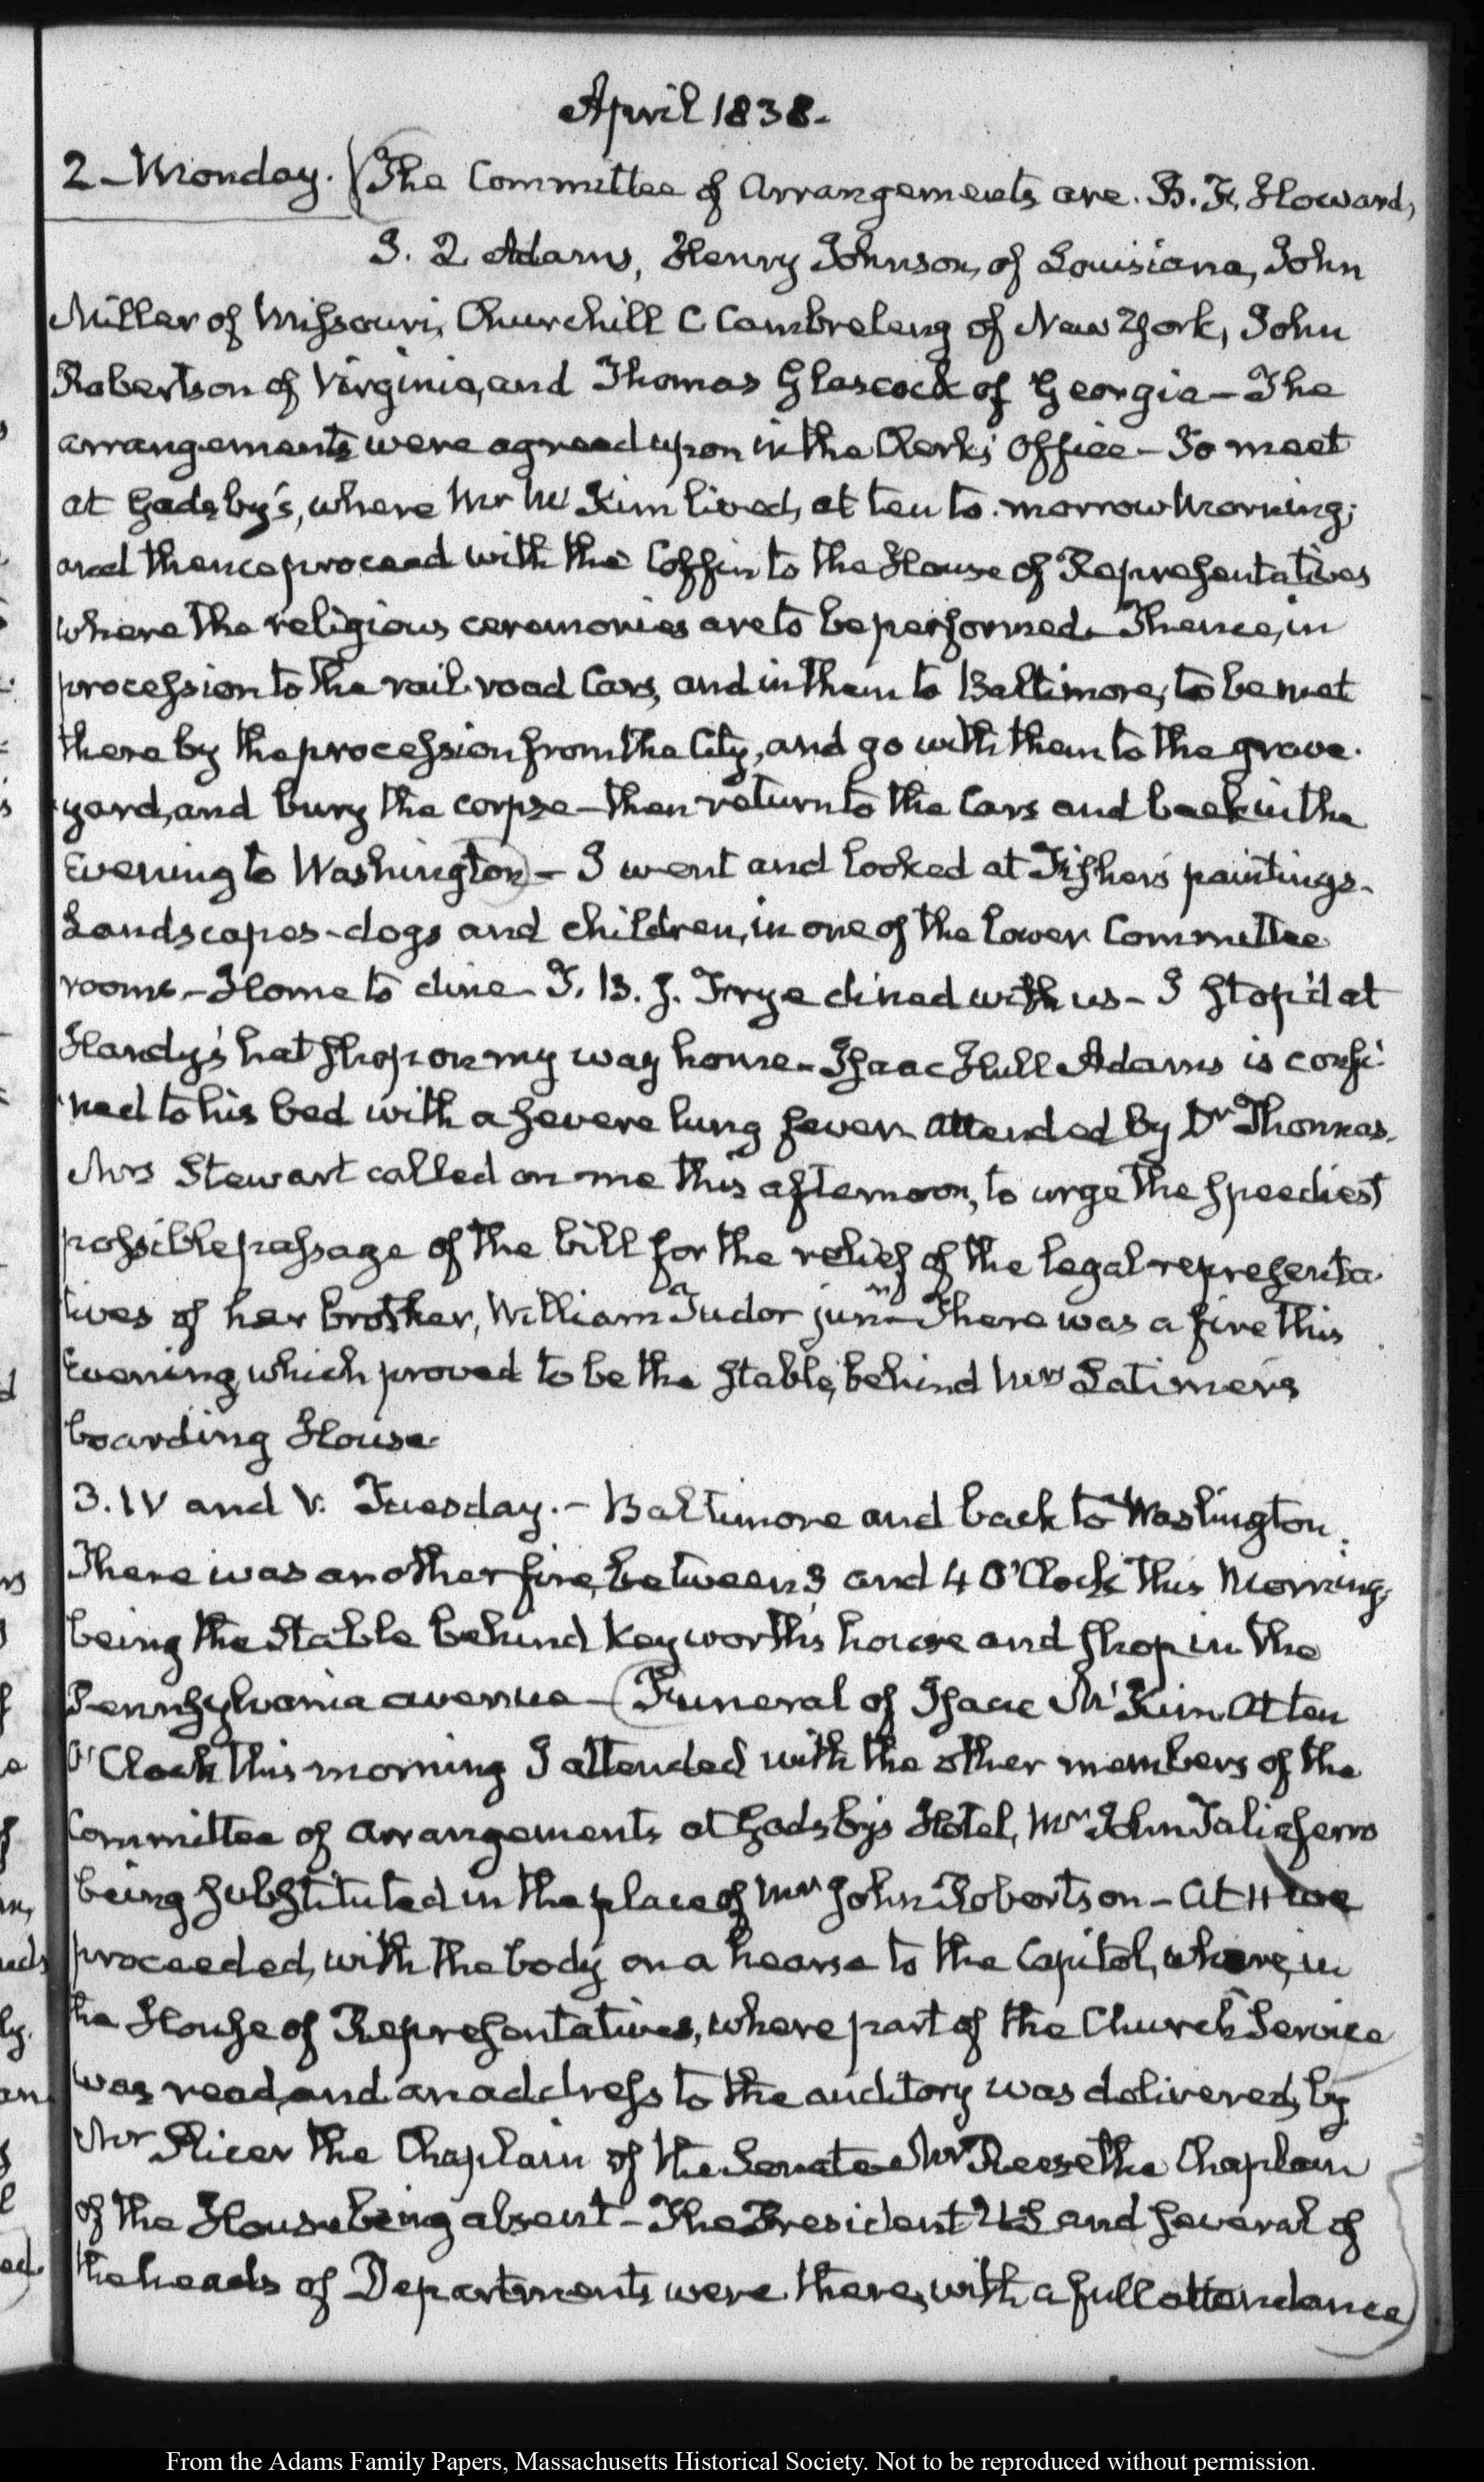 April 1838.
2 - Monday. (The Committee of Arrangements are. B. F. Howard,
J. Q Adams, Henry Johnson, of Louisiana, John
Miller of Missouri, Churchill C Cambreleng of New York, John
Robertson of Virginia, and Thomas Glascock of Georgia - The
arrangements were agreed upon in the Clerks' Office - To meet
at Gadsby's, where Mr Mc'Kim lived, at ten to-morrow Morning;
and thence proceed with the Coffin to the House of Representatives
where the religious ceremonies are to be performed. Thence, in
procession to the rail-road Cars, and in them to Baltimore; to be met
there by the procession from the City, and go with them to the grave-
yard, and bury the corpse - then return to the Cars and back in the
Evening to Washington) - I went and looked at Fisher's paintings -
Landscapes - dogs and children, in one of the lower Committee
rooms. - Home to dine - T. B. J. Frye dined with us - I stop'd at
Handy's hat shop on my way home - Isaac Hull Adams is confi-
ned to his bed with a severe lung fever - attended by Dr Thomas.
Mrs Stewart called on me this afternoon, to urge the speediest
possible passage of the bill for the relief of the legal representa-
tives of her brother, William Tudor junr - There was a fire this
Evening, which proved to be the stable, behind Mrs Latimer's
boarding House
3. IV and V. Tuesday. - Baltimore and back to Washington.
There was another fire, between 3 and 4 O'Clock this Morning;
being the Stable behind Keyworth's house and shop in the
Pennsylvania avenue - (Funeral of Isaac Mc'Kim. At ten
O'Clock this morning I attended with the other members of the
Committee of Arrangements at Gadsby's Hotel, Mr John Taliaferro
being substituted in the place of Mr John Robertson - At 11 we
proceeded, with the body on a hearse to the Capitol, where, in
the House of Representatives, where part of the Church Service
was read, and an address to the auditory was delivered, by
Mr Slicer the Chaplain of the Senate Mr Reese the Chaplain
of the House being absent - The President U.S. and several of
the heads of Departments were there, with a full attendance
From the Adams Family Papers, Massachusetts Historical Society. Not to be reproduced without permission.